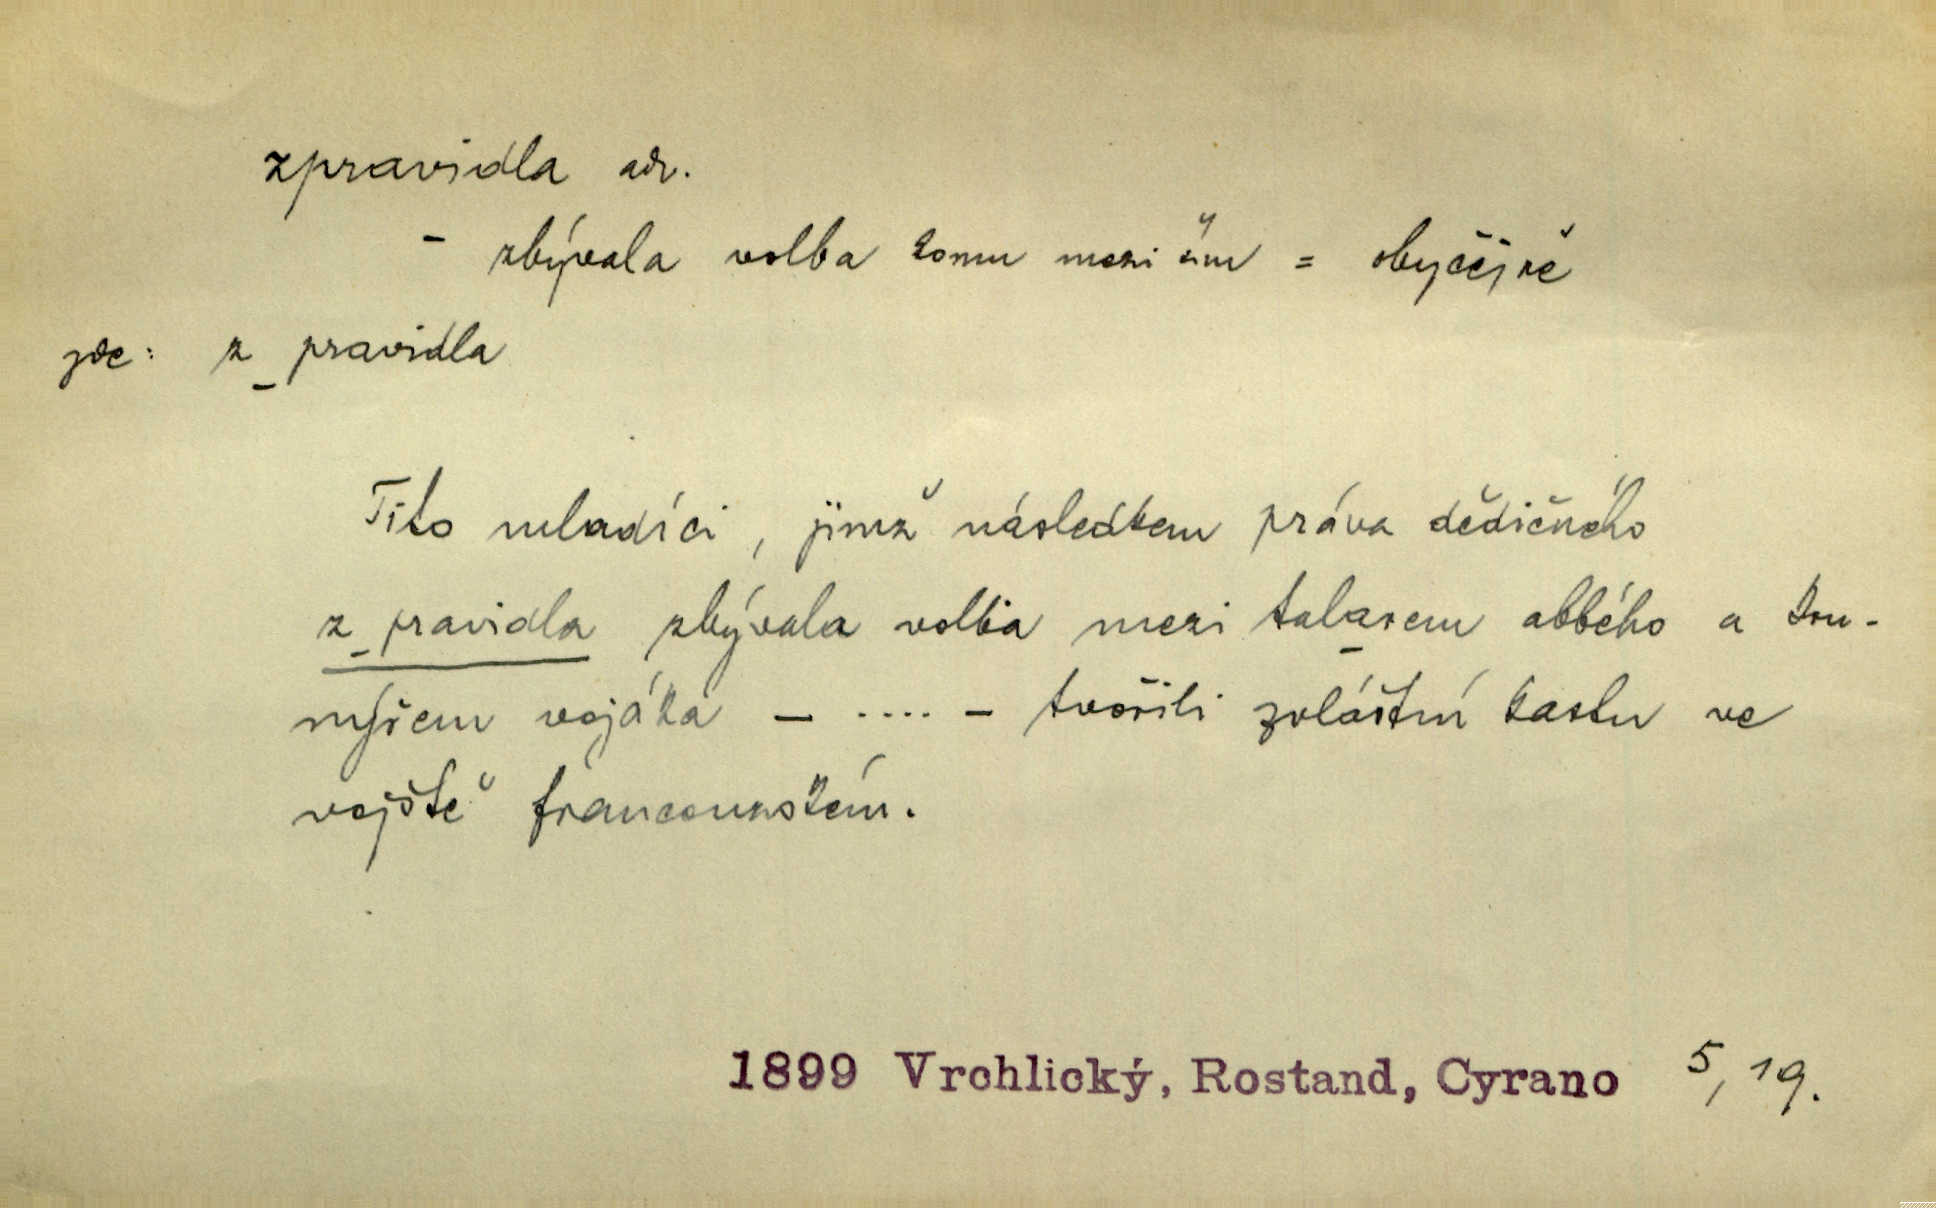 zpravidla adv.
- zbývala volba komu mezi čím = obyčějně
zde: z pravidla
Tito mladíci, jimž následkem práva dědičného
z pravidla zbývala volba mezi talarem abbého a kru-
nýřem vojáka — .... — tvořili zvláštní kastu ve
vojště francouzském.
1899 Vrchlický, Rostand, Cyrano 5, 19.